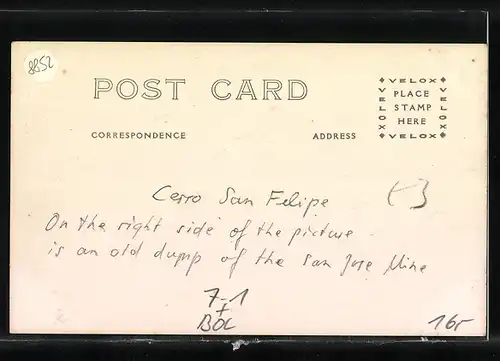 8852
POST CARD
VELOX
VELOX
PLACE
STAMP
HERE
VELOX
VELOX
CORRESPONDENCE ADDRESS
Cerro San Felipe
On the right side of the picture
is an old dump of the San Jose Mine
7-1
BOL